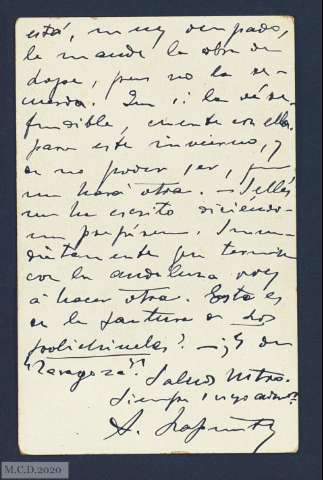 está, muy ocupado,
le mande la obra de
Lope, pues no la re-
cuerda. Que si la vé re-
fundible, cuente con ella
para este invierno, y
de no poder ser, que
me hará otra. — Sellés
me ha escrito diciéndo-
me preparen. Inme-
diatamente que termine
con la andaluza voy
á hacer otra. Esta és
en la
polichinelas? — ¿Y de
"Zaragoza"? Saludos Ntros.
Siempre suyo
A.
M.C.D.2020